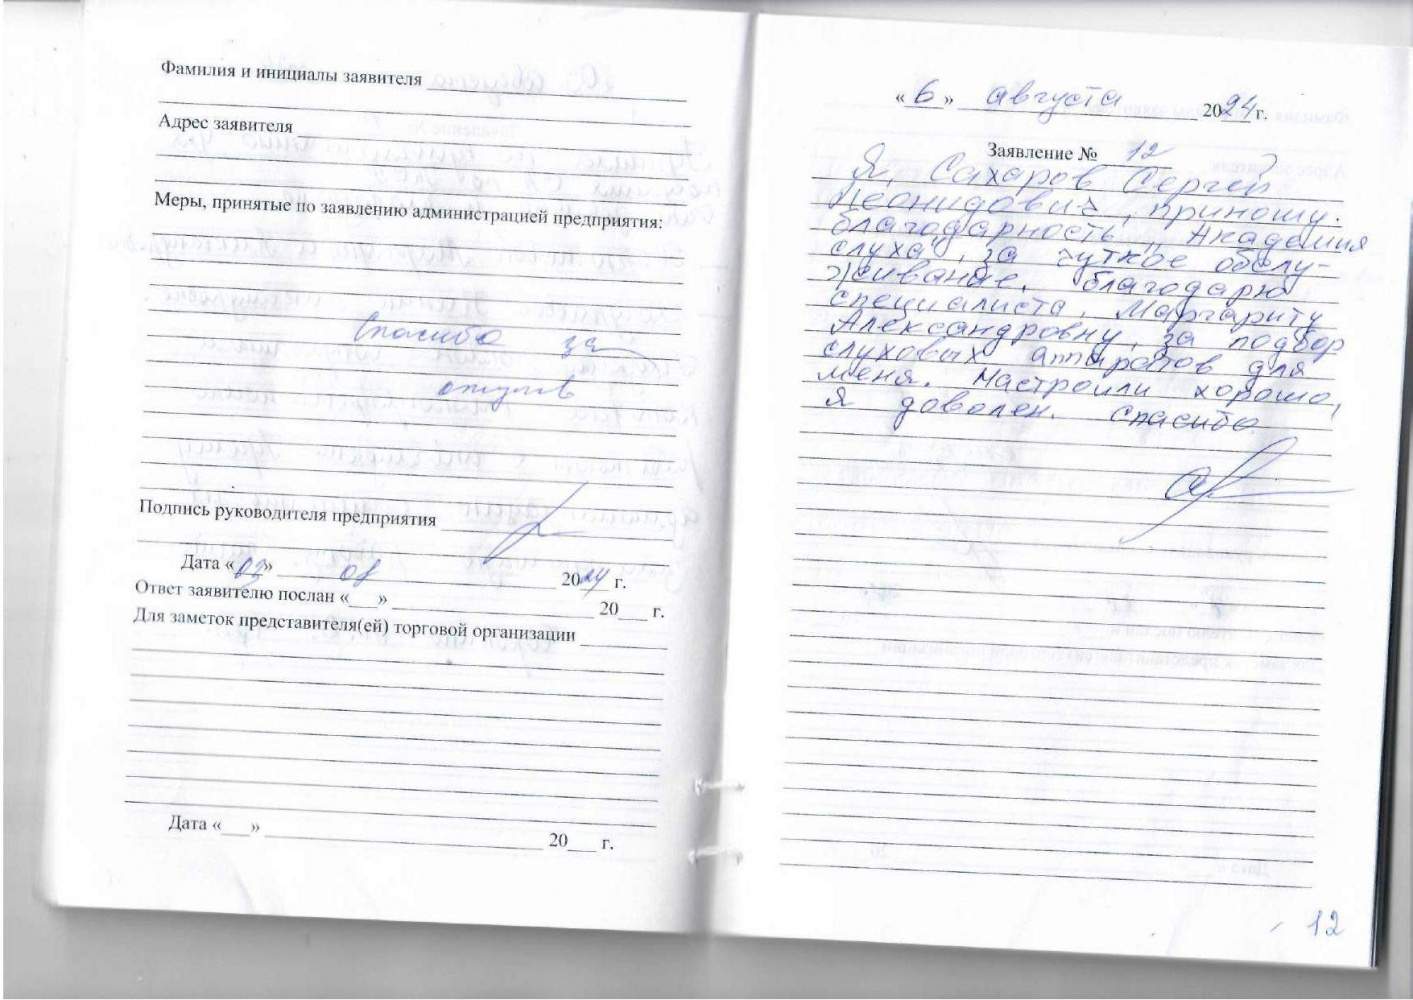 Фамилия и инициалы заявителя
Адрес заявителя
Меры, принятые по заявлению администрацией предприятия:
Спасибо за
отзыв
Подпись руководителя предприятия
Дата « » 08 2024 г.
Ответ заявителю послан «___» 20___ г.
Для заметок представителя(ей) торговой организации
Дата «___» 20___ г.
« 6 » августа 2024 г.
Заявление № 12
Я, Сахаров Сергей
Леонидович, приношу.
благодарность „Академия
слуха", за чуткое обслу-
живание. благодарю
специалиста, Маргариту
Александровну, за подбор
слуховых аппаратов для
меня. Настроили хорошо,
я доволен. спасибо
12